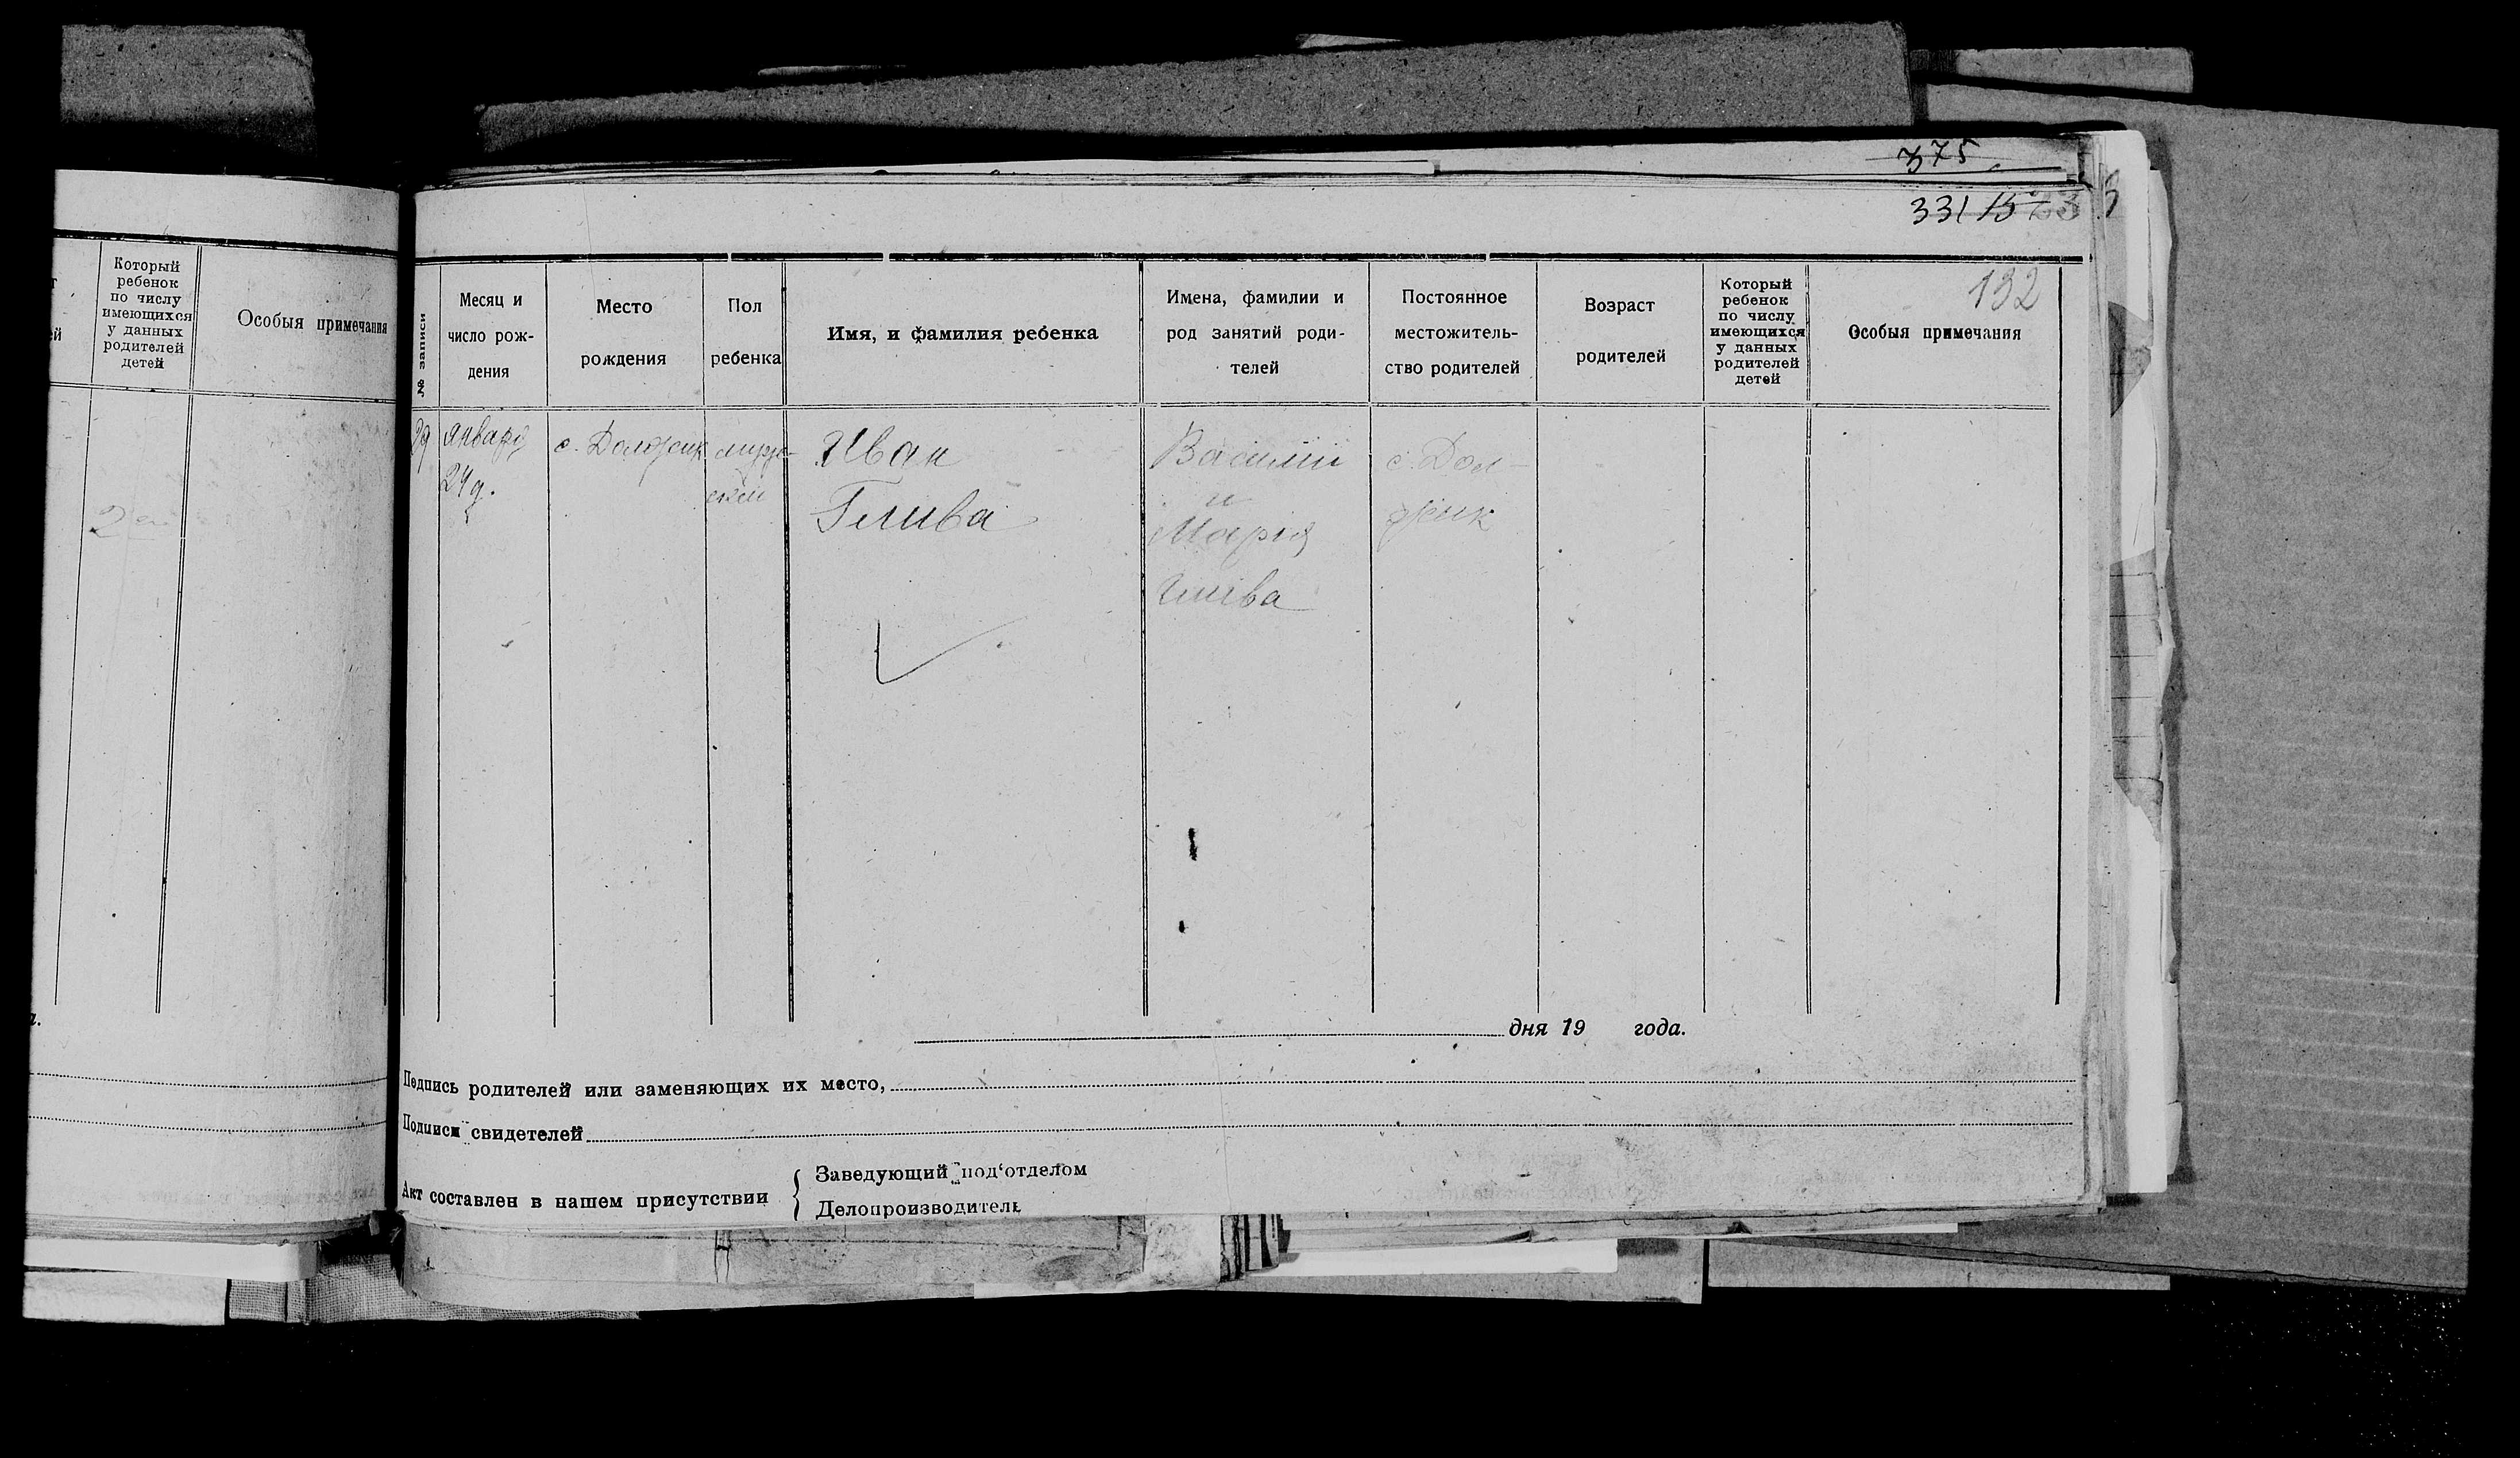 375
331
132
Который
ребенок
по числу
имеющихся
у данных
родителей
детей
Особыя примечания
№ записи
Месяц и
число рож-
дения
Место
рождения
Пол
ребенка
Имя, и фамилия ребенка
Имена, фамилии и
род занятий роди-
телей
Постоянное
местожитель-
ство родителей
Возраст
родителей
Который
ребенок
по числу
имеющихся
у данных
родителей
детей
Особыя примечания
января
24 д.
с. Должик
муж-
ской
Иван
Глива
Василий
и
Мария
Глива
с. Дол-
жик
дня 19 года.
Подпись родителей или заменяющих их место,
Подписи свидетелей
Акт составлен в нашем присутствии
Заведующий под'отделом
Делопроизводитель